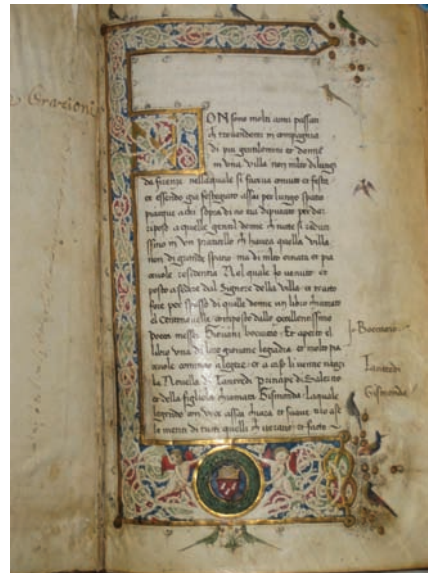 ON sono molti anni passati
che trovandomi in compagnia
di piu gentilomini et donne
in una villa non molto di lungi
da firenze nella quale si faceva convito et festa
et essendo gia festegiato assai per lungo spatio
piacque a chi sopra di cio era deputato per dar
riposo a quelle gentil donne che tutti si reduci
ssino in un pratello che haveva quella villa
non di grande spatio ma di molto ornata et pia
cevole residentia Nel quale fo venuto et
posto a sedere dal Signore della villa et tracto
fore per spasso di quelle donne un libro chiamato
el Centonovelle composto dallo excellentissimo
poeta messer Giovani boccacio Et aperto el
libro una di loro giovane legiadra et molto pia
cevole comincio a legere et a caso li venne
La Novella di Tancredi Principe di Salerno
et della figliola chiamata Gismonda Laquale
legiendo con voce assai chiara et suave
le menti di tutti quelli
Jo Boccacio
Tancredi
Gismonda
Orationi